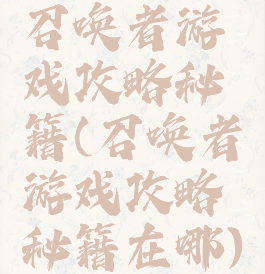 召唤者游
戏攻略秘
籍(召唤者
游戏攻略
秘籍在哪)